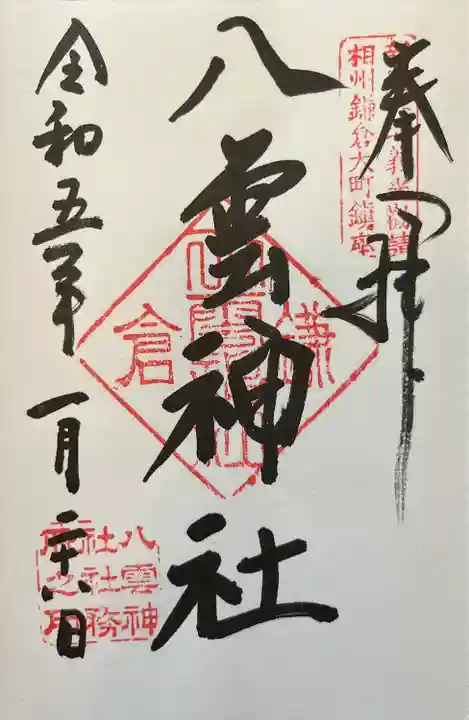 奉拝
義光勧請
相州鎌倉大町鎮座
八雲神社
鎌倉
令和五年 一月二十八日
八雲神
社社務
所之印